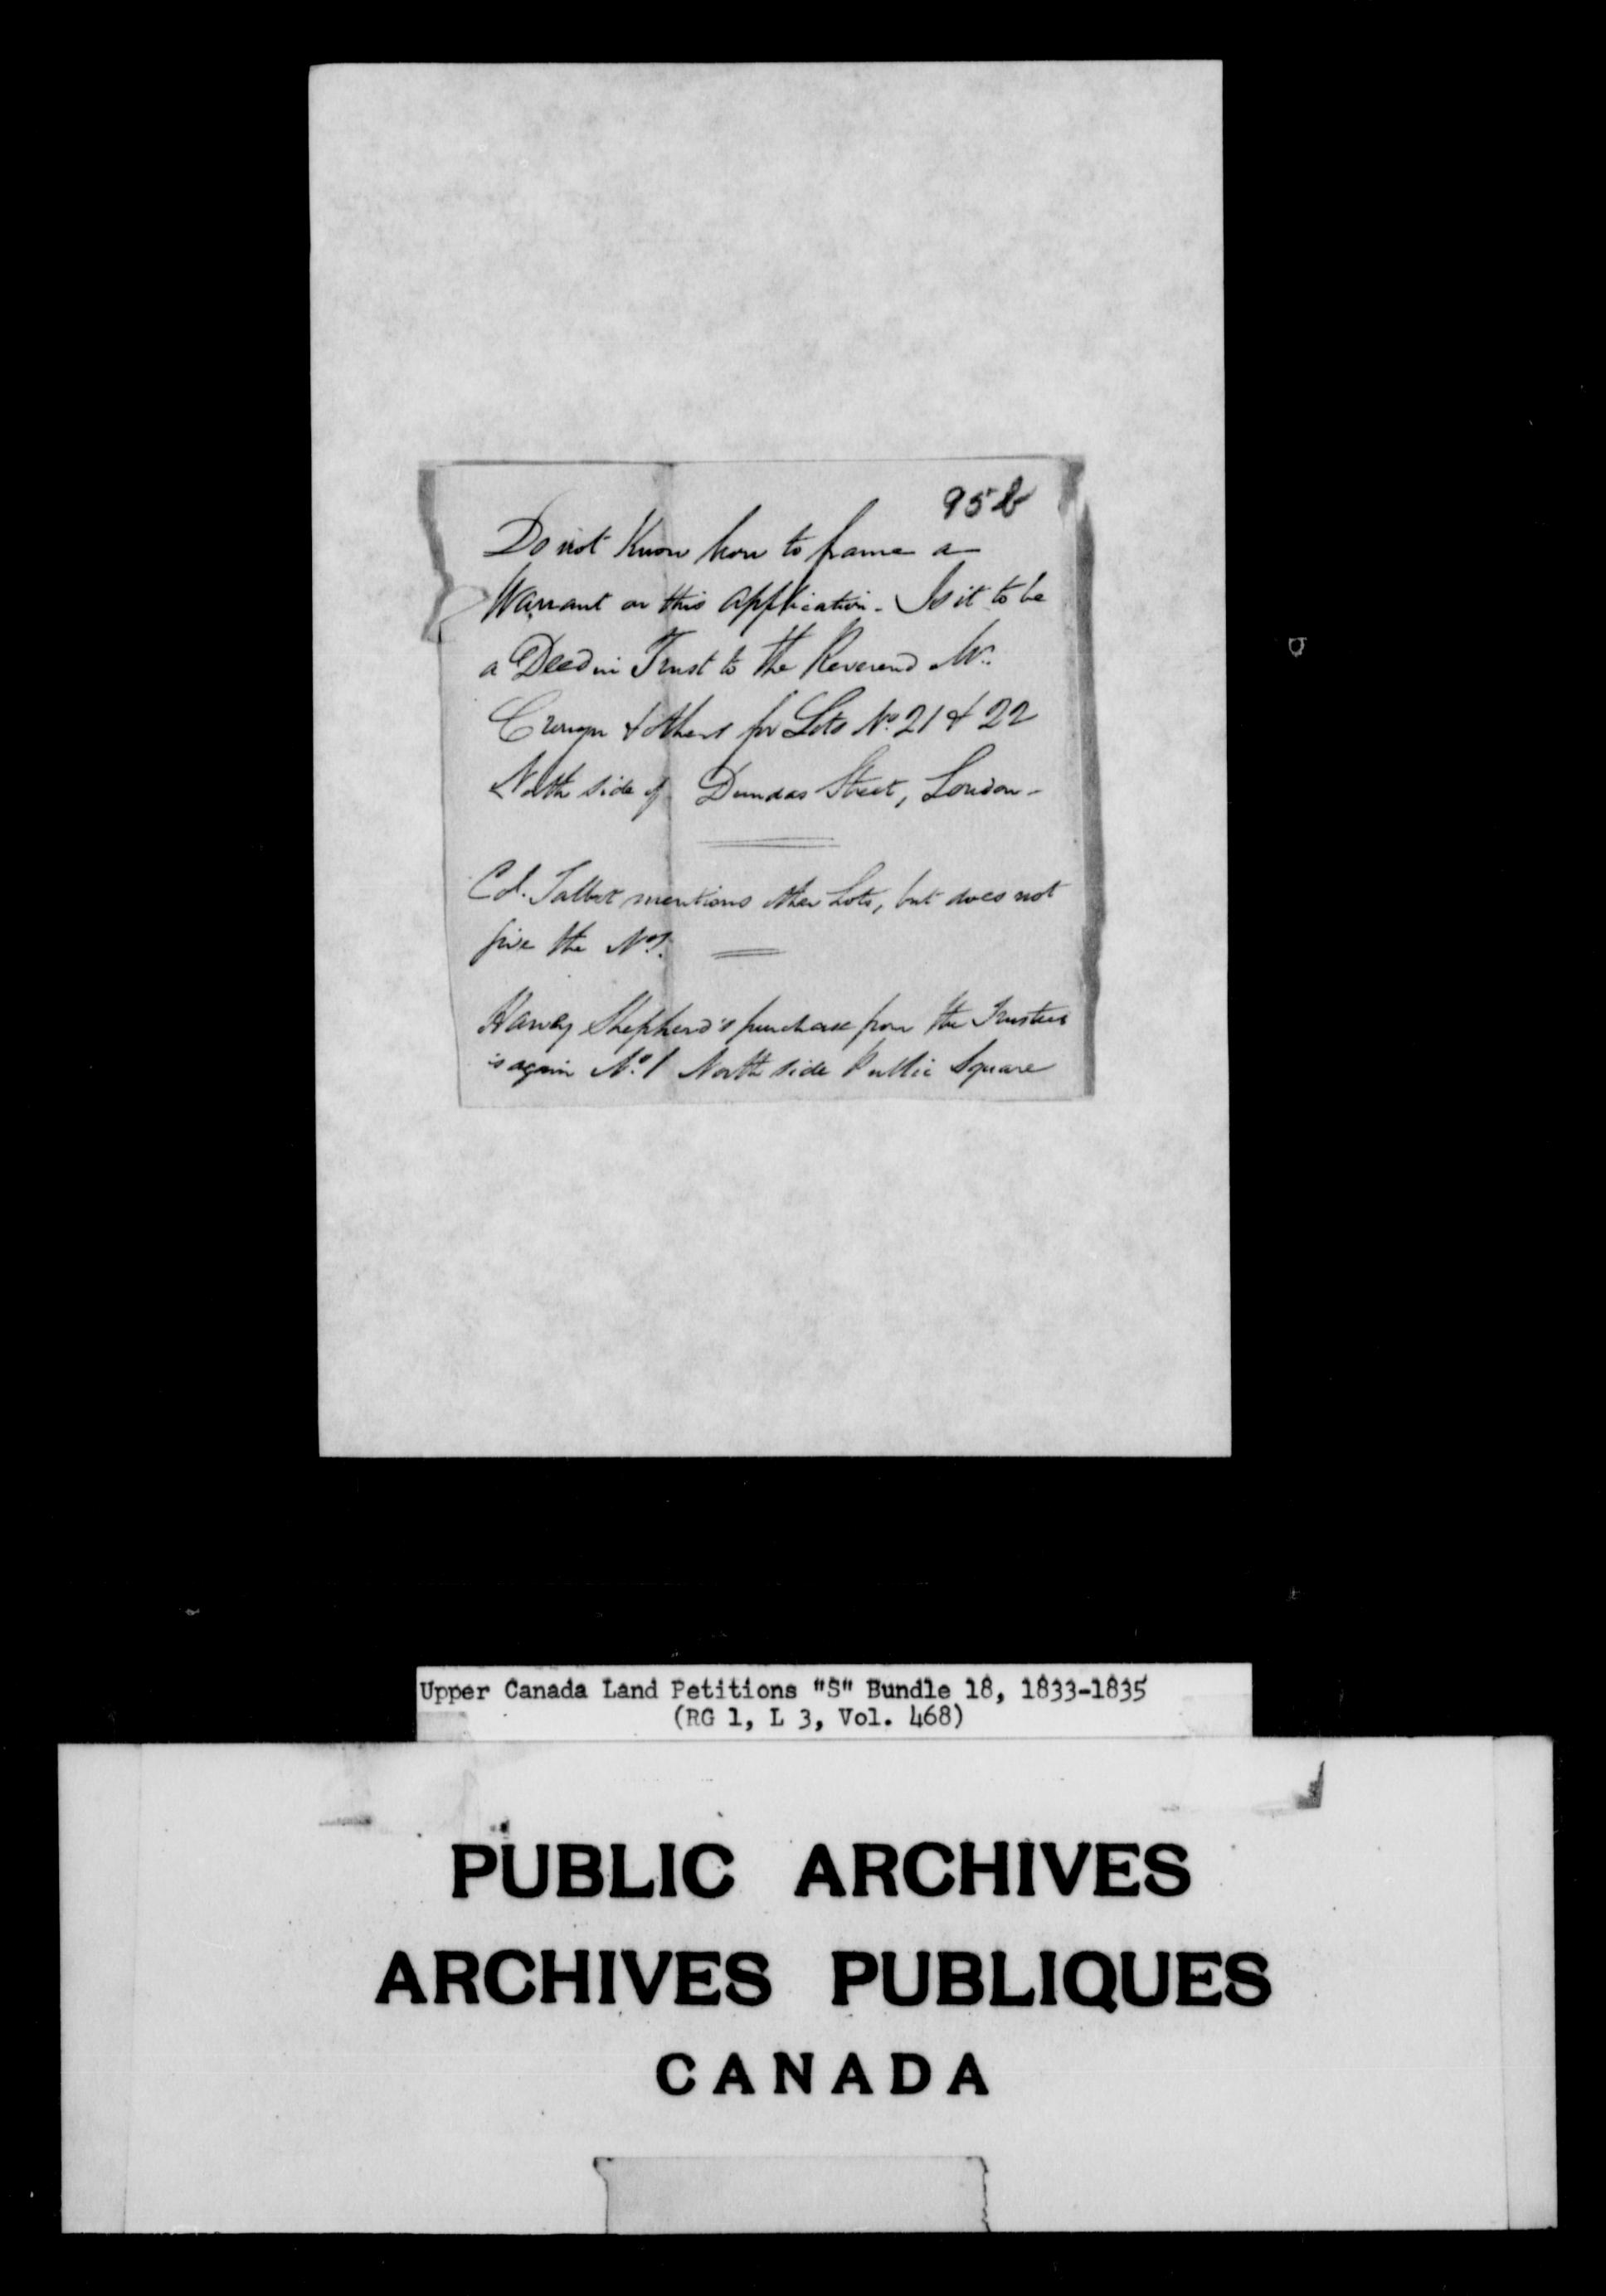 95b
Do not Know how to frame a
Warrant on this application - Is it to be
a Deed in Trust to the Reverend Mr.
Cronyn & others for Lots No. 21 & 22
North side of Dundas Street, London -
Col. Talbot mentions other Lots, but does not
give the Nos.
Harvey Shepherd's purchase from the Trustees
is again No. 1 North side Public Square
Upper Canada Land Petitions "S" Bundle 18, 1833-1835
(RG 1, L 3, Vol. 468)
PUBLIC ARCHIVES
ARCHIVES PUBLIQUES
CANADA